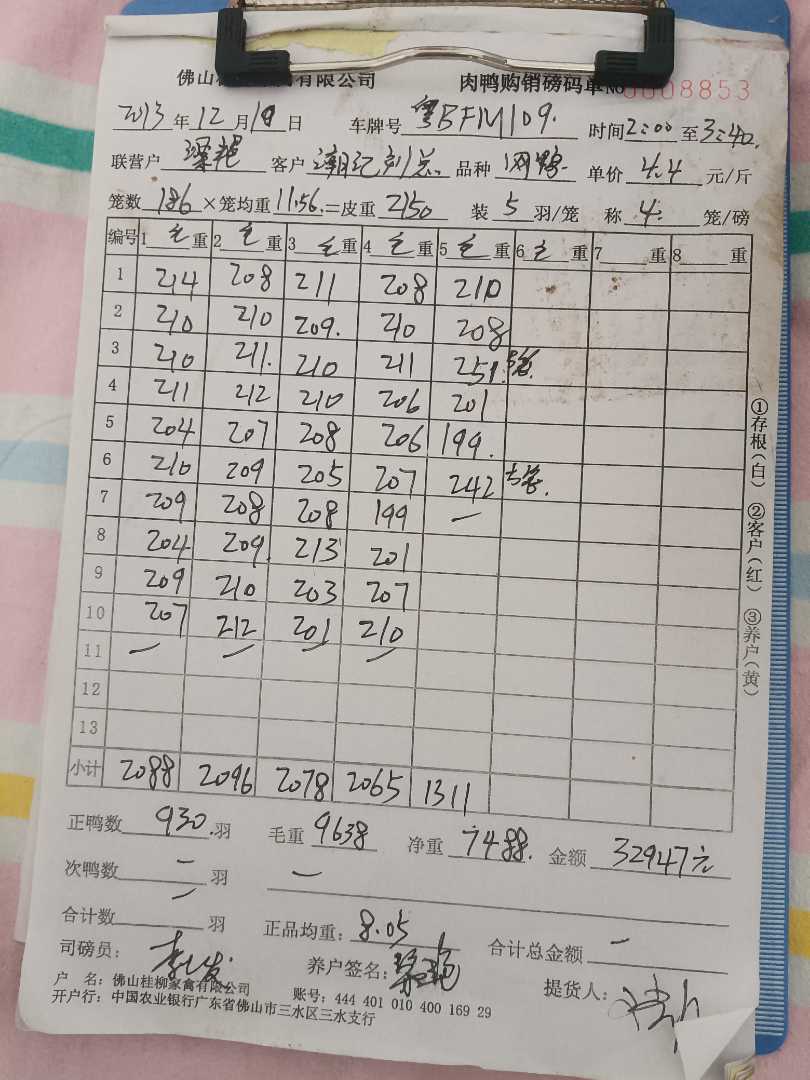 佛山桂 有限公司 肉鸭购销磅码单 No 0008853
2013 年 12 月 10 日 车牌号 粤BFM109. 时间 2:00 至 3:40.
联营户 梁艳 客户 潮记刘总 品种 单价 4.4 元/斤
笼数 186 ×笼均重 11.56 =皮重 2150 装 5 羽/笼 称 4 笼/磅
编号 1 毛 重 2 毛 重 3 毛 重 4 毛 重 5 毛 重 6 毛 重 7 重 8 重
1 214 208 211 208 210
2 210 210 209. 210 208
3 210 211. 210 211 251. 5笼.
4 211 212 210 206 201
5 204 207 208 206 199.
6 210 209 205 207 242 5笼.
7 209 208 208 199 —
8 204 209. 213 201
9 209 210 203 207
10 207 212 201 210
11 — — — —
12
13
小计 2088 2096 2078 2065 1311
正鸭数 930. 羽 毛重 9638 净重 7488. 金额 32947元
次鸭数 — 羽 —
合计数 — 羽 正品均重: 8.05 合计总金额 —
司磅员: 养户签名: 梁艳 提货人:
户 名: 佛山桂柳家禽有限公司 账号: 444 401 010 400 169 29
开户行: 中国农业银行广东省佛山市三水区三水支行
①存根(白) ②客户(红) ③养户(黄)